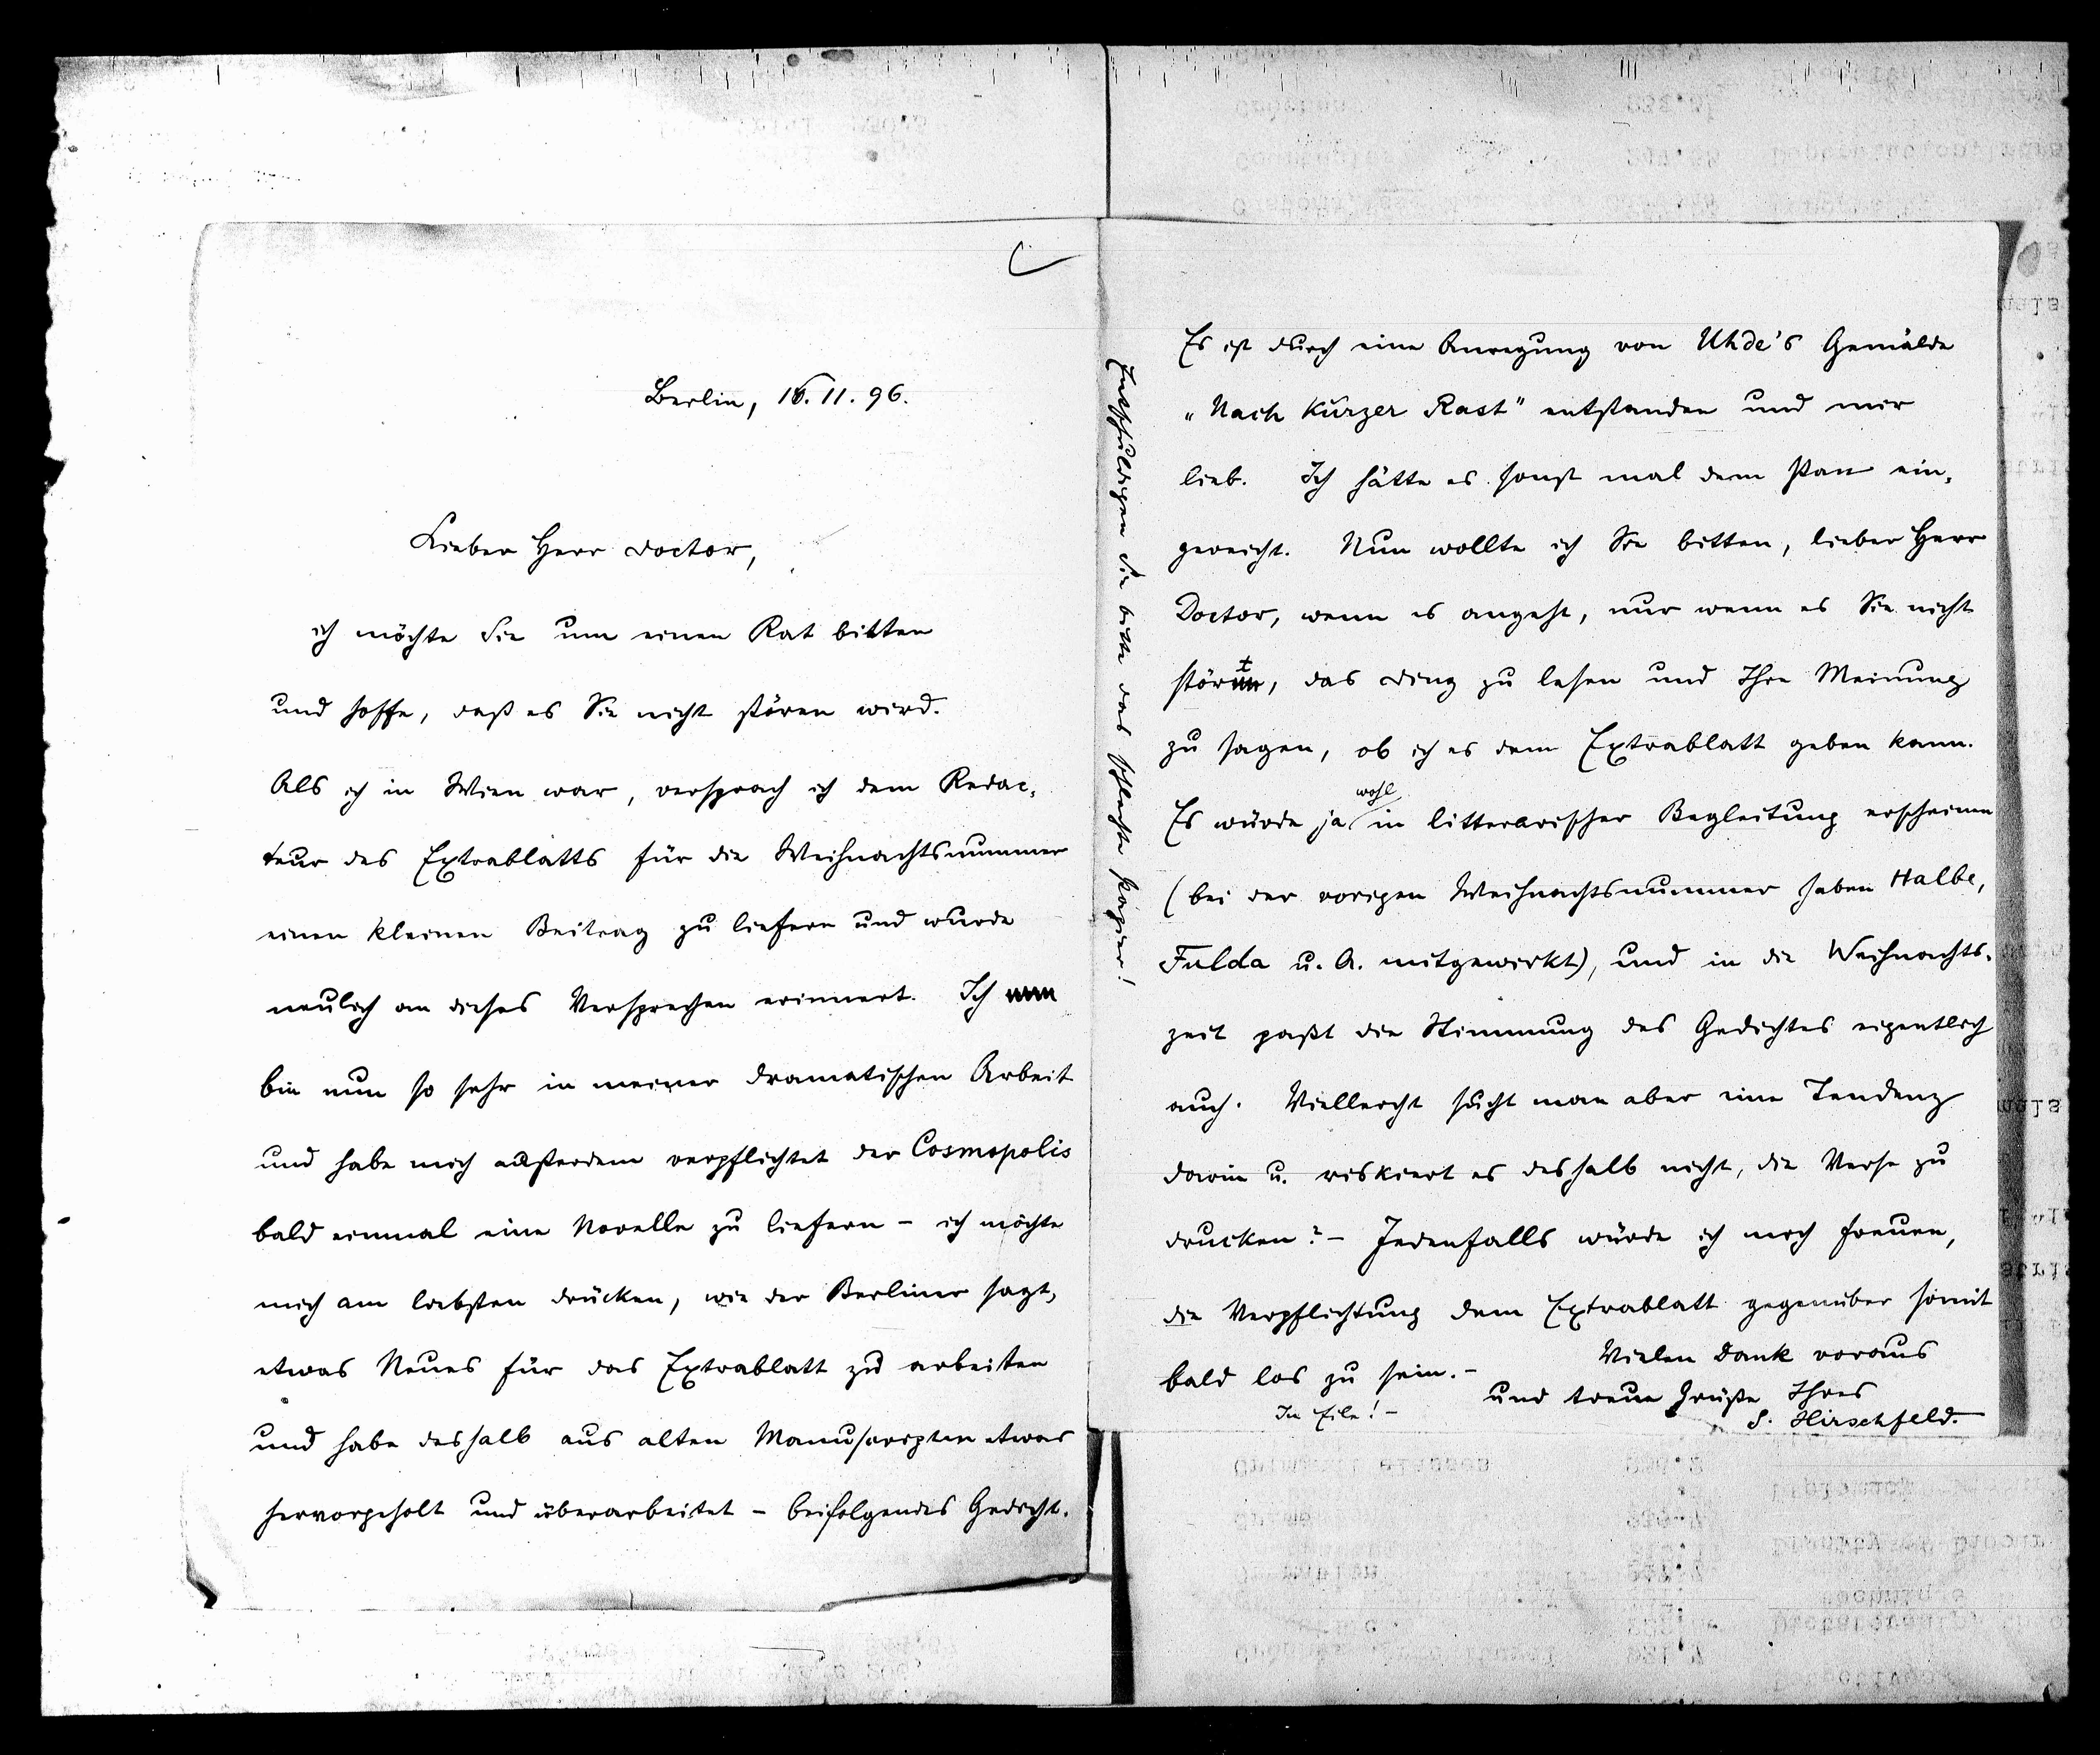 Berlin, 16.11.96.
Lieber Herr Doctor,
ich möchte Sie um einen Rat bitten
und hoffe, daß es Sie nicht stören wird.
Als ich in Wien war, versprach ich dem Redac-
teur des Extrablatts für die Weihnachtsnummer
einen kleinen Beitrag zu liefern und wurde
neulich an dieses Versprechen erinnert. Ich
bin nun so sehr in meiner dramatischen Arbeit
und habe mich außerdem verpflichtet der Cosmopolis
bald einmal eine Novelle zu liefern – ich möchte
mich am liebsten drücken, wie der Berliner sagt,
etwas Neues für das Extrablatt zu arbeiten
und habe deshalb aus alten Manuscripten etwas
hervorgeholt und überarbeitet – beifolgendes Gedicht.
Es ist durch eine Anregung von Uhde's Gemälde
„Nach kurzer Rast" entstanden und mir
lieb. Ich hätte es sonst mal dem Pan ein-
gereicht. Nun wollte ich Sie bitten, lieber Herr
Doctor, wenn es angeht, nur wenn es Sie nicht
stört, das Ding zu lesen und Ihre Meinung
zu sagen, ob ich es dem Extrablatt geben kann.
Es würde ja wohl in litterarischer Begleitung erscheinen
(bei der vorigen Weihnachtsnummer haben Halbe,
Fulda u. A. mitgewirkt), und in die Weihnachts-
zeit paßt die Stimmung des Gedichtes eigentlich
auch. Vielleicht sucht man aber eine Tendenz
darin u. riskiert es deshalb nicht, die Verse zu
drucken? – Jedenfalls würde ich mich freuen,
die Verpflichtung dem Extrablatt gegenüber somit
bald los zu sein. –
Vielen Dank voraus
und treue Grüße Ihres
In Eile! –
Hirschfeld.
Entschuldigen Sie bitte das schlechte Papier!